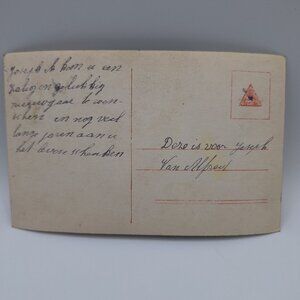 Joseph Ik kom u een
zalig en gelukkig
nieuwjaar te wen-
schen en nog veel
lange jaren aan u
het
Deze is voor Joseph
Van Alfons